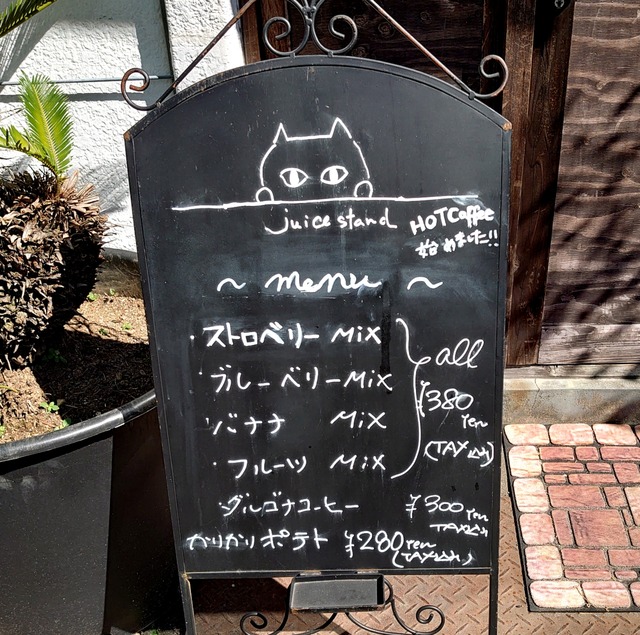 juice stand
HOT Coffee
始めました!!
~ menu ~
・ストロベリー MiX
・ブルーベリー MiX
・バナナ MiX
・フルーツ MiX
all
¥380 Yen
(TAX込み)
ダルゴナコーヒー ¥300 Yen
TAX込み
かりかりポテト ¥280 Yen
(TAX込み)